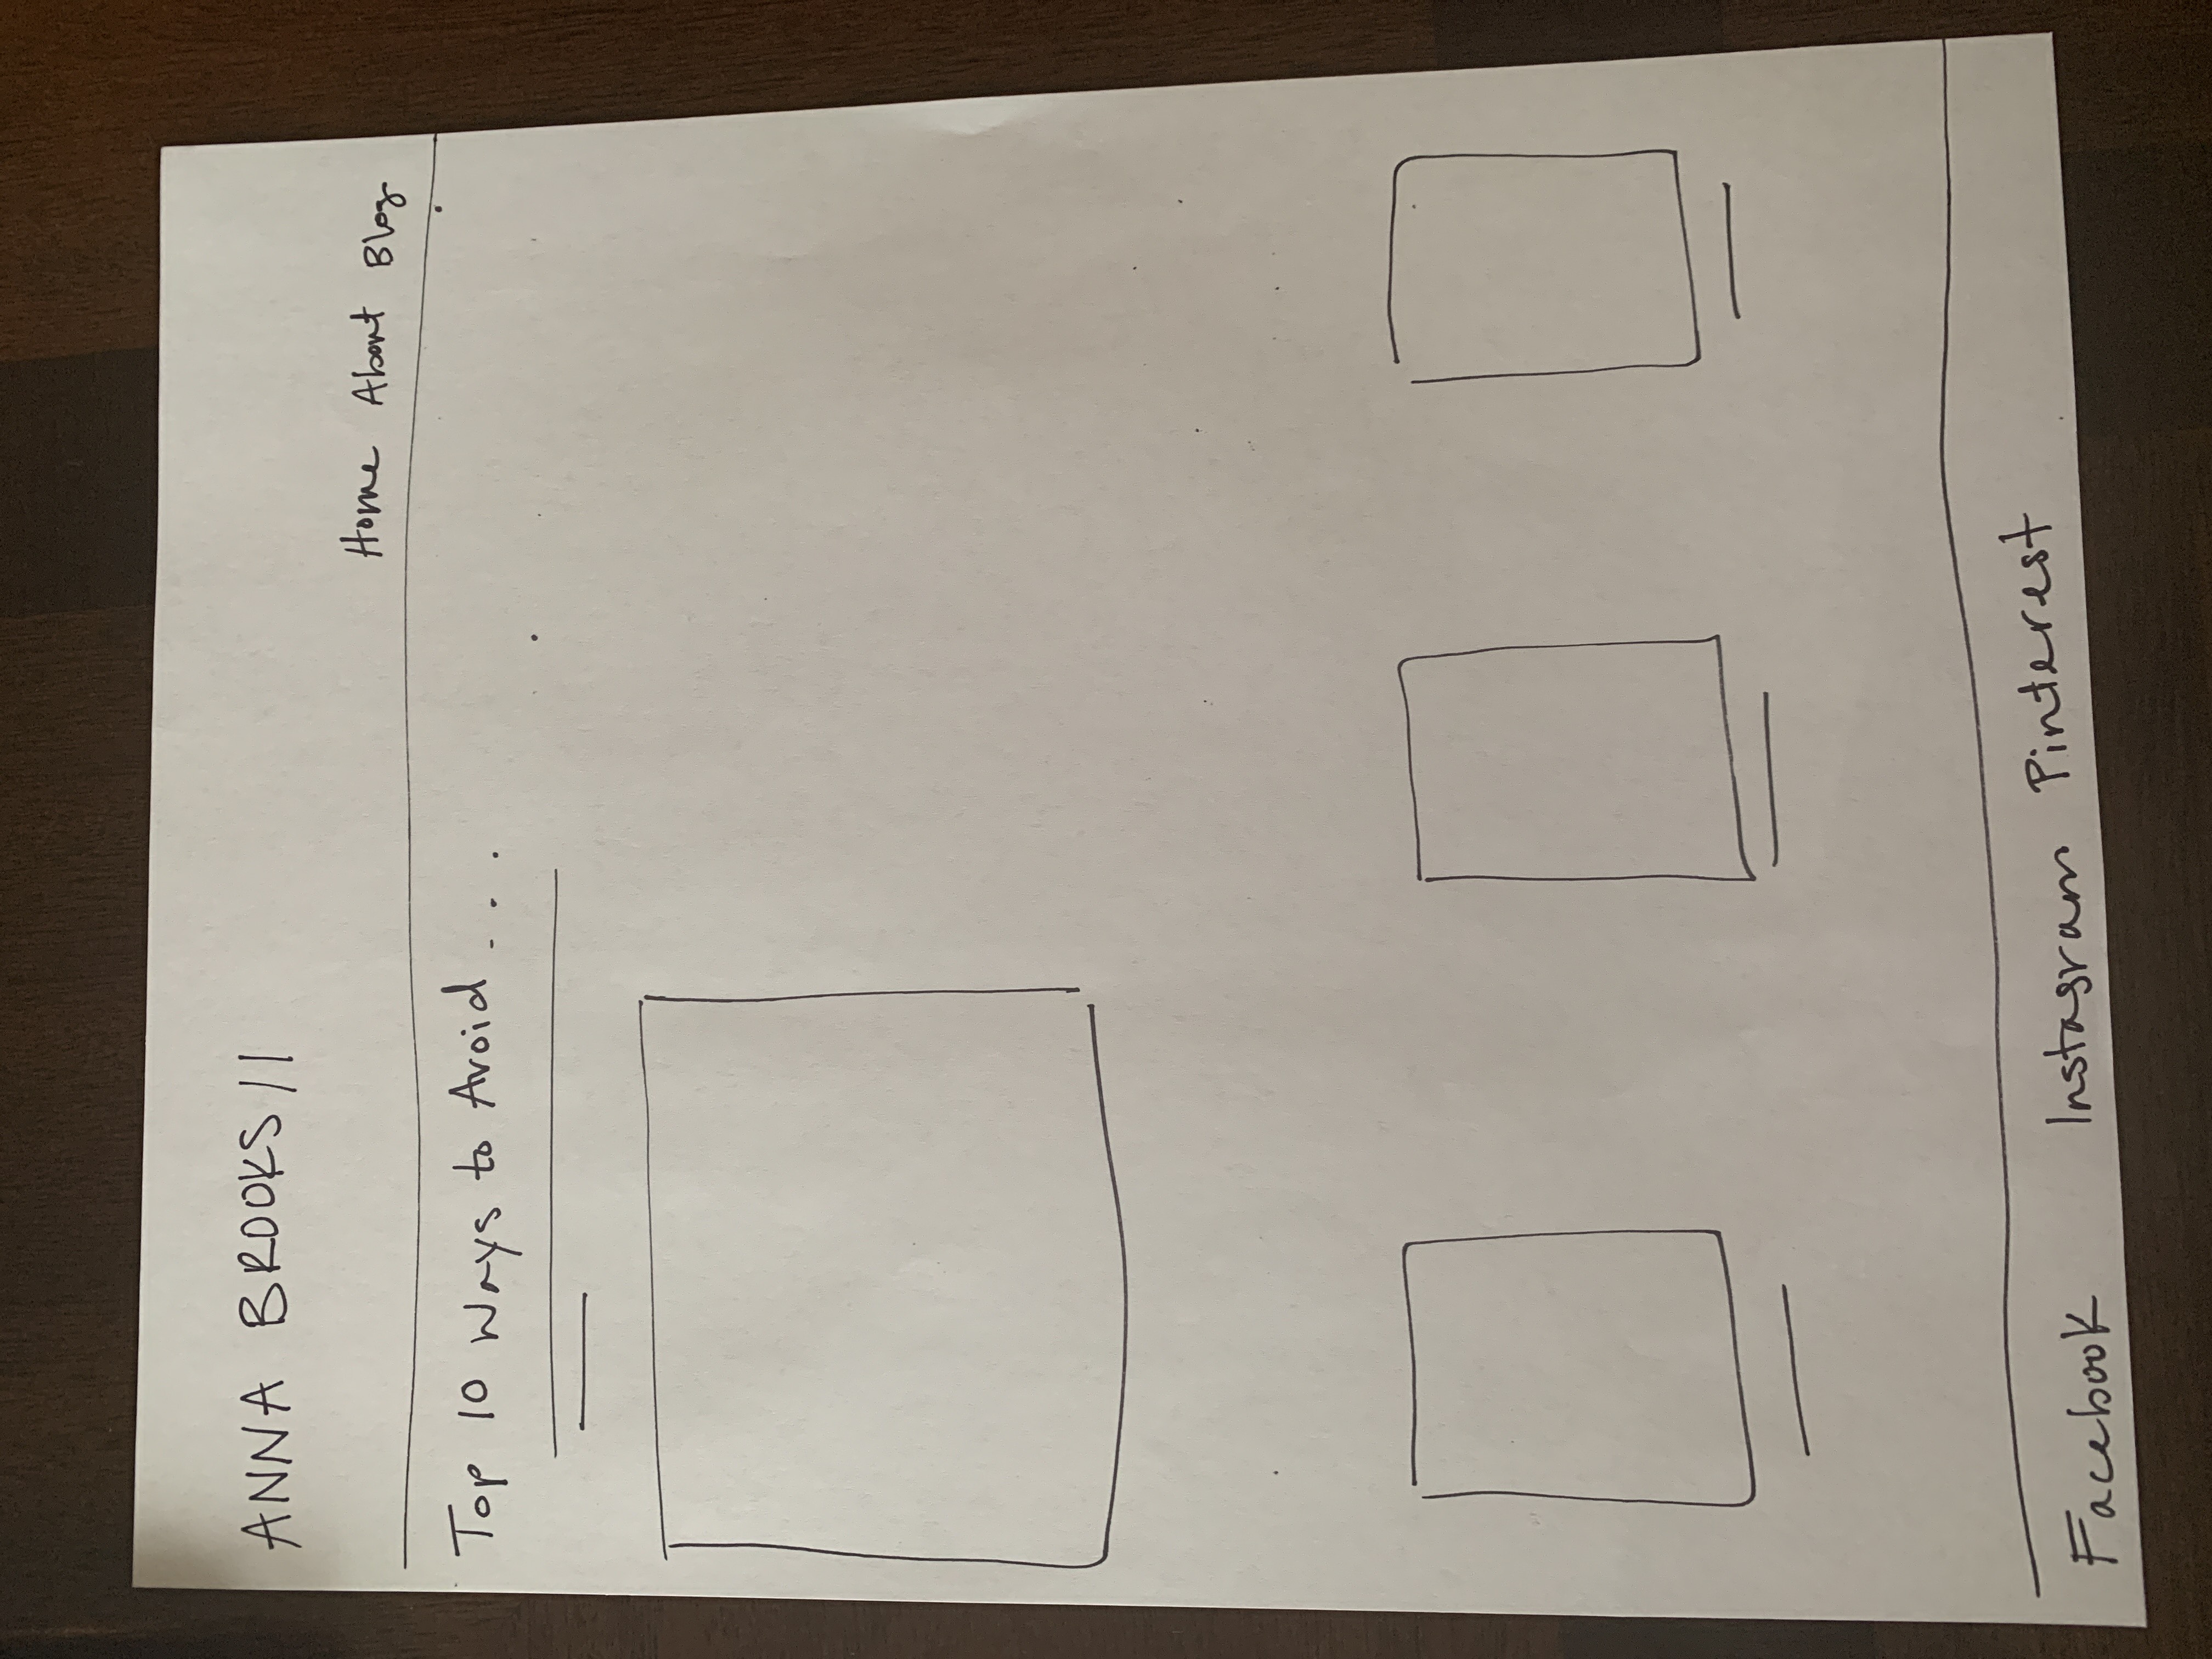 ANNA BROOKS//
Home About Blog
Top 10 Ways to Avoid . . .
Facebook Instagram Pinterest